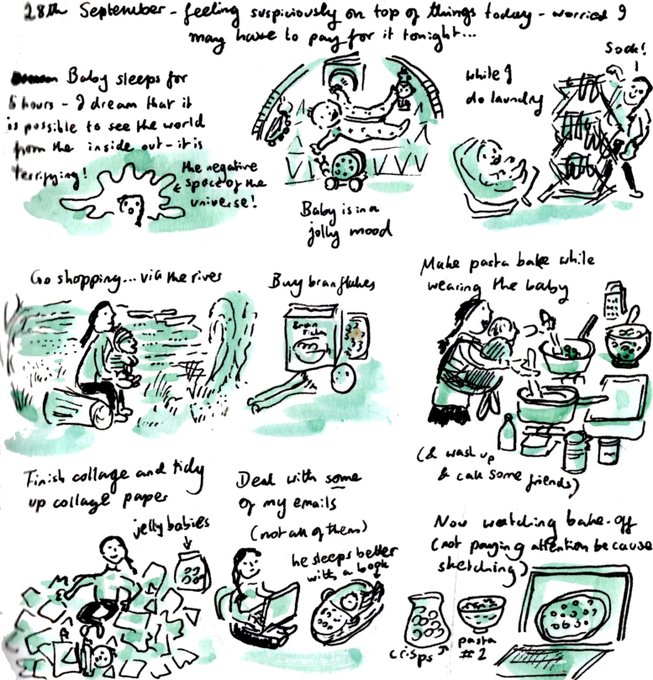 28th September - feeling suspiciously on top of things today - worried I
may have to pay for it tonight...
Baby sleeps for
hours - I dream that it
is possible to see the world
from the inside out - it is
terrifying!
the negative
space of the
universe!
Baby is in a
jolly mood
while I
do laundry
Sock!
Go shopping... via the river
Buy branflakes
Bran
Make pasta bake while
wearing the baby
(& wash up
& call some
friends)
Finish collage and tidy
up collage paper
jelly babies
Deal with some
of my emails
(not all of them)
he sleeps better
with a book
Now watching bake-off
(not paying attention because
sketching)
crisps
pasta
#2